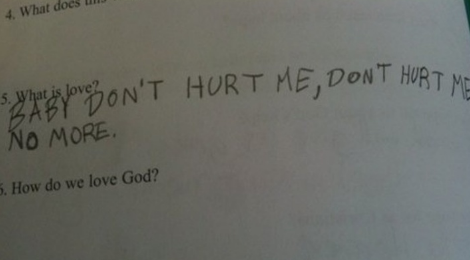 4. What does
5. What is love?
BABY DON'T HURT ME, DON'T HURT ME
NO MORE.
6. How do we love God?